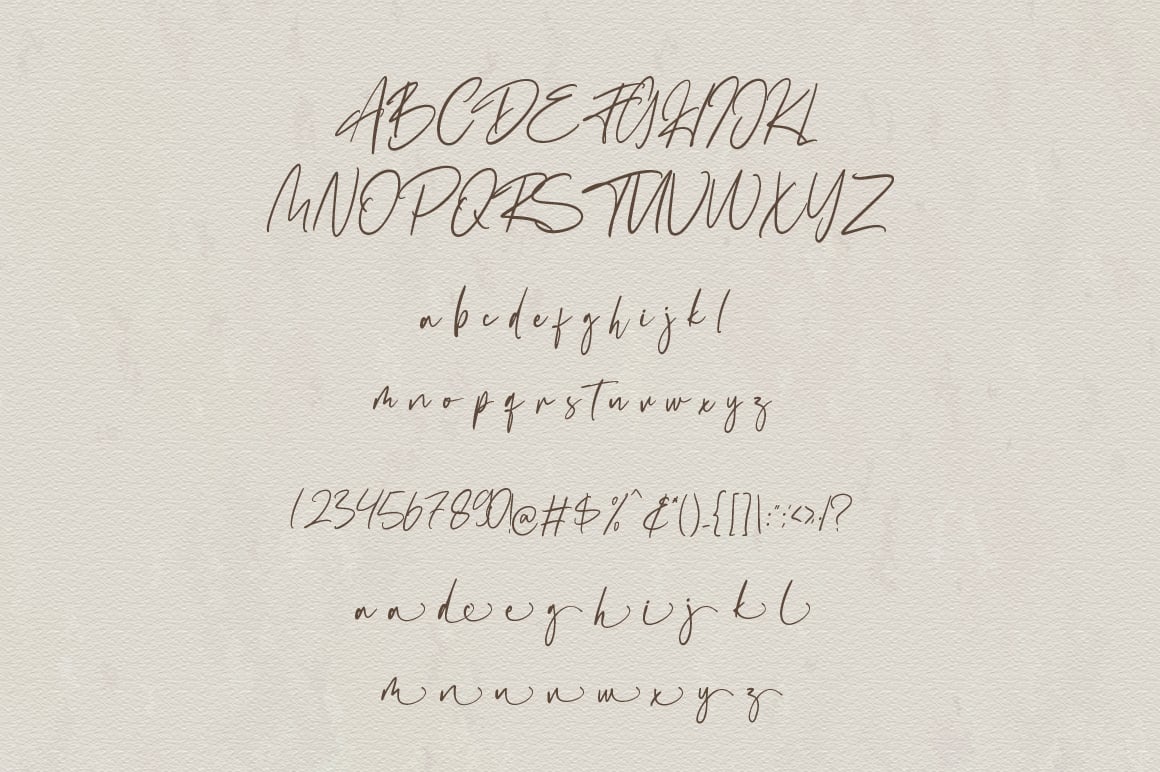 ABCDEFGHIJKL
MNOPQRSTUVWXYZ
a b c d e f g h i j k l
m n o p q r s t u v w x y z
1234567890!@#$%^&*()_-{[]|:";'<>,./?
a a d e e g h i j k l
m n u n w x y z